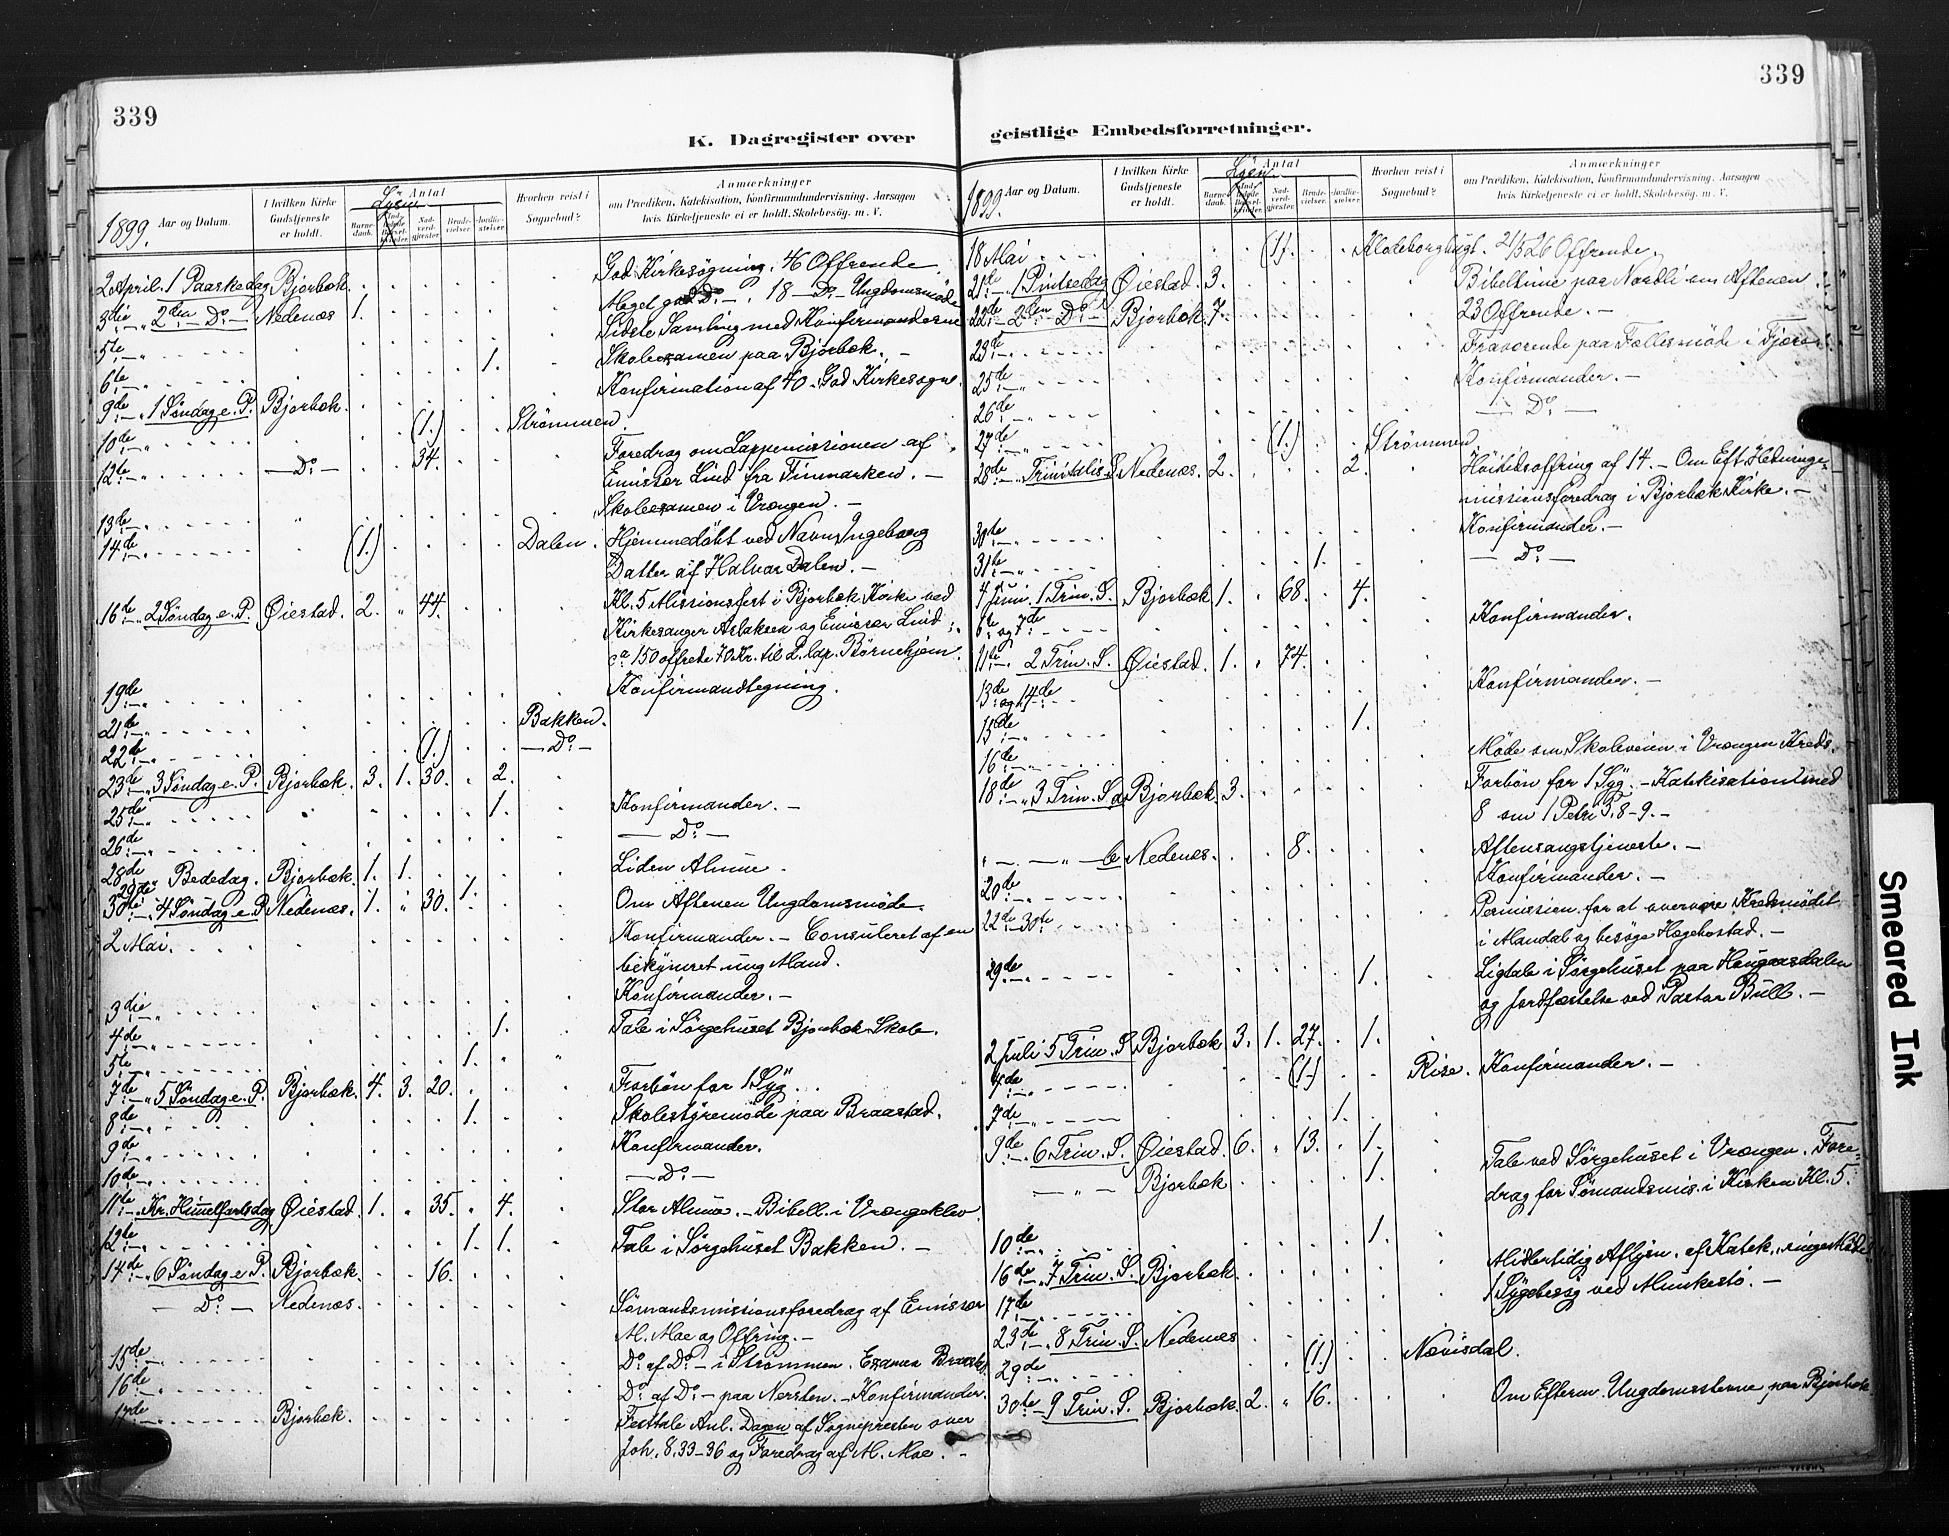 339
339
K. Dagregister over
geistlige Embedsforretninger.
1899.
Aar og Datum.
I hvilken Kirke Gudstjeneste er holdt.
Antal
Barnedaab.
Nadverdgjester.
Brudevielser.
Jordfæstelser.
Hvorhen reist i Sognebud?
Anmærkninger
om Prædiken, Katekisation, Konfirmandundervisning, Aarsagen
hvis Kirketjeneste ei er holdt. Skolebesøg. m. V.
2 April. 1 Paaskedag Bjorbæk. God Kirkesøgning. 46 Offrende.
3die „ 2den Do Nedenæs 1. Meget god Do. 18 Do. Ungdomsmøde
5te „ Sidste Samling med Konfirmanderne
6te „ 1. Skoleexamen paa Bjorbæk.
9de „ 1 Søndag e. P. Bjorbæk. Konfirmation af 40. God Kirkesøgn.
10de „ (1.) Strømmen.
12te „ Do 34. Foredrag om Lappemissionen af
Emissær Lind fra Finmarken.
13de „ Skoleexamen i Vrængen.
14de „ (1.) Dalen. Hjemmedøbt ved Navn Ingeborg
Datter af Halvar Dalen.
16de „ 2 Søndag e. P. Øiestad. 2. „ 44. Kl. 5 Missionsfest i Bjorbæk Kirke ved
Kirkesanger Aslaksen og Emissær Lind
ca 150 offrede 70 Kr. til d. lap. Børnehjem.
19de „ Konfirmandtegning.
21de „ Bakken.
22de „ (1.) Do
23de „ 3 Søndag e. P. Bjorbæk. 3. 1. 30. 2.
25de „ 1. Konfirmander.
26de „ Do
28de „ Bededag. Bjorbæk. 1. 1. Liden Almue.
29de 1.
30te „ 4 Søndag e. P. Nedenæs. 1. „ 30. Om Aftenen Ungdomsmøde.
2 Mai. Konfirmander. Consuleret af en
bekymret ung Mand.
3die „ Konfirmander.
4de „ 1. Tale i Sørgehuset Bjorbæk Skole.
5te „ 1.
7de „ 5 Søndag e. P. Bjorbæk. 4. 3. 20. Forbøn for 1 Syg.
8de „ 1. Skolestyremøde paa Braastad.
9de „ Konfirmander.
10de „ Do
11te „ Kr. Himmelfartsdag Øiestad. 1. „ 35. 4. Stor Almue. Bibell. i Vrængeklev.
12te „ 1. 1. Tale i Sørgehuset Bakken.
14de „ 6 Søndag e. P. Bjorbæk. 16.
Do Nedenæs. Sømandsmissionsforedrag af Emissær
M. Moe og Offring.
15de „ Do. af Do. i Strømmen. Examen
16de „ Do. af Do. paa Nersten. Konfirmander.
17de „ Bjorbæk. Festtale Anl. Dagen af Sognepresten over
Joh. 8.33-36 og Foredrag af M. Moe.
1899.
Aar og Datum.
I hvilken Kirke Gudstjeneste er holdt.
Antal
Barnedaab.
Nadverdgjester.
Brudevielser.
Jordfæstelser.
Hvorhen reist i Sognebud?
Anmærkninger
om Prædiken, Katekisation, Konfirmandundervisning, Aarsagen
hvis Kirketjeneste ei er holdt. Skolebesøg. m. V.
18 Mai (1). Klodeborghugt. 21/5 26 Offrende.
21de „ 1 Pintsedag Øiestad. 3. Bibeltime paa Nordli om Aftenen
22de 2den Do Bjorbæk 7. 23 Offrende.
23de „ Fraværende paa Fællesmøde i
25de „ Konfirmander.
26de „ Do
27de „ (1.) Strømmen
28de „ Trinitatis S. Nedenæs. 2. 2. Høitidsoffring af 14. Om Eft. Hedninge-
missionsforedrag i Bjorbæk Kirke.
30te „ Konfirmander.
31te „ 1. Do
4 Juni. 1 Trin. S. Bjorbæk 1. 68. 4.
6te og 7de Konfirmander.
11te „ 2 Trin. S. Øiestad. 1. „ 74.
13de og 14de Konfirmander.
15de „ 1.
16de „ Møde om Skoleveien i Vrængen Kreds.
18de „ 3 Trin. S. a Bjorbæk 3. Forbøn for 1 Syg. Katekisation med
8 om 1 Petri 3.8-9.
b Nedenæs. 8. Aftensangstjeneste.
20de „ Konfirmander.
22de-30te Permission for at overvære Kredsmødet
i Mandal og besøge Hægebostad.
29de „ 1. Ligtale i Sørgehuset paa
og Jordfæstelse ved Pastor Bull.
2 Juli 5 Trin. S. Bjorbæk 3. 1. 27. 1.
4de (1.) Rise. Konfirmander.
7de „ 1.
9de „ 6 Trin. S. Øiestad. 6. „ 13. 1.
„ Bjorbæk 1. Tale ved Sørgehuset i Vrængen. Fore-
drag for Sømandsmis. i Kirken Kl. 5.
10de „ 1.
16de „ 7 Trin. S. Bjorbæk.
17de „ 1 Sygebesøg ved
23de „ 8 Trin. S. Nedenæs
29de „ (1.) Nævisdal.
30te 9 Trin. S. Bjorbæk. 2. „ 16. Om Efterm. Ungdomsstevne paa Bjorbæk.
Smeared Ink